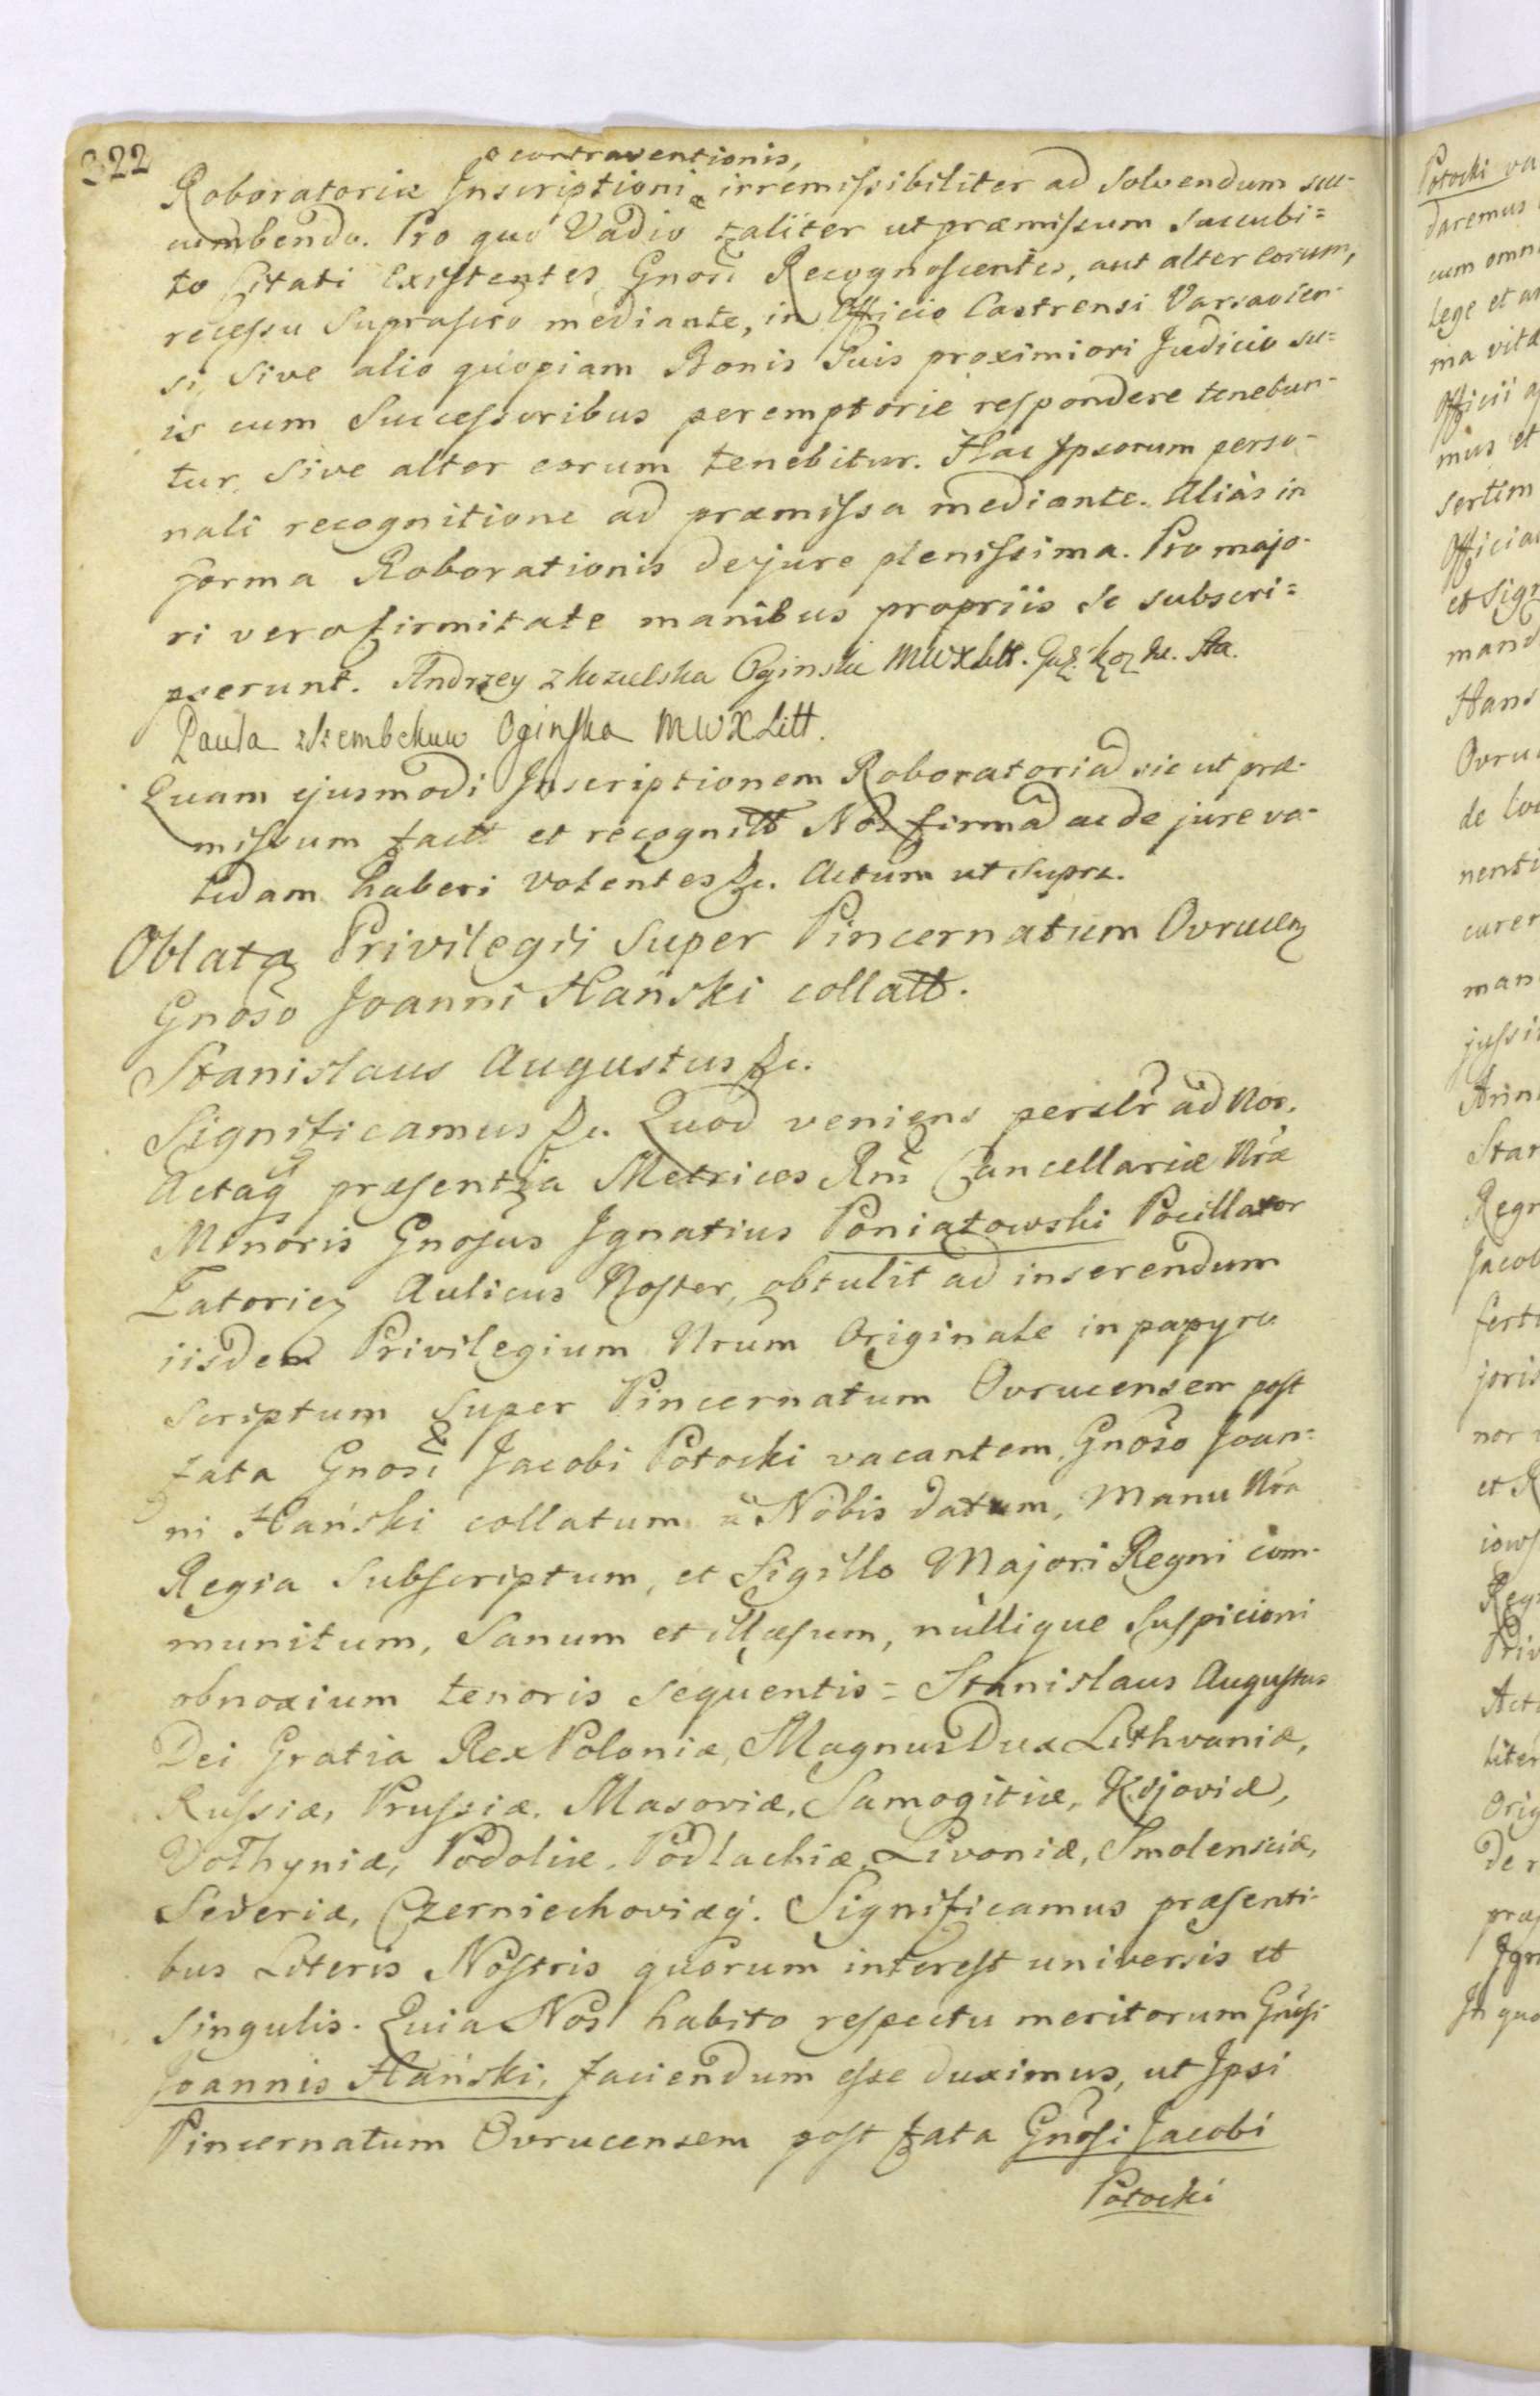 322
contraventionis,
Roboratoriæ Inscriptioni irremissibiliter ad solvendum suc-
cumbendo. Pro quo Vadio taliter ut præmissum succubi=
to Citati Existentes Gnosi Recognoscentes, aut alter eorum,
recessu Suprascro mediante, in Officio Castrensi Varsavien-
si, Sive alio quopiam Bonis Suis proximiori Judicio su=
is cum Successoribus peremptorie respondere tenebun-
tur, Sive alter eorum tenebitur. Hac Ipsorum perso-
nali recognitione ad præmissa mediante. Aliàs in
forma Roborationis de jure plenissima. Pro majo-
ri vero firmitate manibus propriis se subscri=
pserunt. Andrzey z Kozielska Oginski MWXLitt.
Paula z Szembekuw Oginska MWXLitt.
Quam ejusmodi Inscriptionem Roboratoriã sic ut præ-
missum factt et recognitt Nos firmã ac de jure va-
lidam haberi volentes &c. Actum ut supra.
Oblata Privilegii Super Pincernatum Ovrucen
Gnoso Joanni Hański collatt.
Stanislaus Augustus &c.
Significamus &c. Quod veniens persltr ad Nos,
Actaq præsentia Metrices Rni Cancellariæ Nræ
Minoris Gnosus Ignatius Poniatowski Pocillator
Latoricz Aulicus Noster, obtulit ad inserendum
iisdem Privilegium Nrum Originale in papyro
scriptum Super Pincernatum Ovrucensem post
fata Gnosi Jacobi Potocki vacantem, Gnoso Joan=
ni Hański collatum à Nobis datum, Manu Nra
Regia Subscriptum, et Sigillo Majori Regni com-
munitum, Sanum et illæsum, nullique Suspicioni
obnoxium tenoris sequentis = Stanislaus Augustus
Dei Gratia Rex Poloniæ, Magnus Dux Lithvaniæ,
Russiæ, Prussiæ, Masoviæ, Samogitiæ, Kijoviæ,
Volhyniæ, Podoliæ, Podlachiæ, Livoniæ, Smolensciæ,
Severiæ, Czerniechoviæq. Significamus præsenti-
bus Literis Nostris quorum interest universis et
singulis. Quia Nos habito respectu meritorum Gnosi
Joannis Hański, faciendum esse duximus, ut Ipsi
Pincernatum Ovrucensem post fata Gnosi Jacobi
Potocki